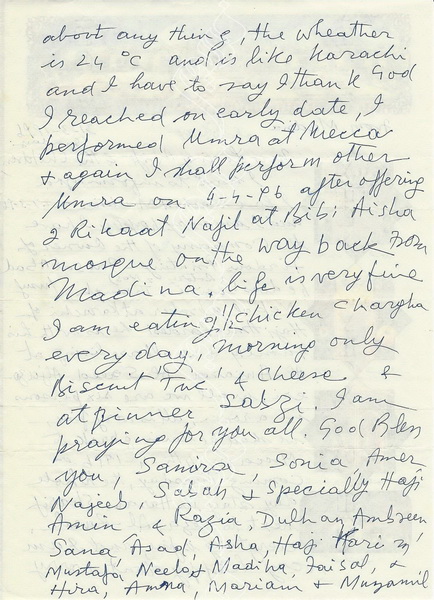 about any thing, the wheather
is 24 °C and is like Karachi
and I have to say I thank God
I reached on early date, I
performed Umra at Mecca
& again I shall perform other
Umra on 4-4-96 after offering
2 Rikaat Nafil at Bibi Aisha
mosque on the way back from
Madina. life is very fine
I am eating 1/2 chicken Chargha
every day, morning only
Biscuit 'Tuc' & cheese &
at Dinner Sabzi. I am
praying for you all. God Bless
you, Samira, Sonia, Amer,
Najeeb, Sabah & specially Haji
Amin & Razia, Dulhan Ambreen
Sana, Asad, Asha, Haji Karim,
Mustafa, Neelo & Madiha, Faisal, &
Hira, Amna, Mariam & Muzamil